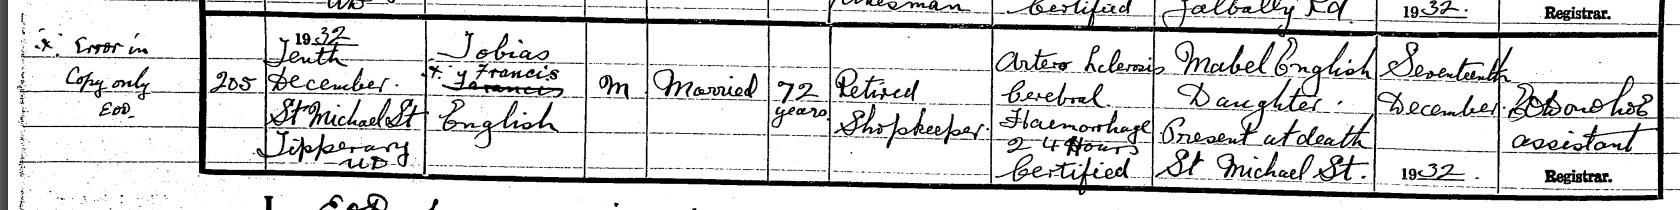 Certified
Talbally Rd.
1932.
Registrar.
.x. Error in
Copy only
EOD.
205
1932
Tenth
December.
St Michael St
Tipperary
UD
Tobias
x. y Francis
Farancis
English
M
Married
72
years
Retired
Shopkeeper.
Artero Sclerosis
Cerebral
Haemorrhage
24 Hours
Certified
Mabel English
Daughter.
Present at death
St Michael St.
Seventeenth
December.
1932.
assistant
Registrar.
EOD